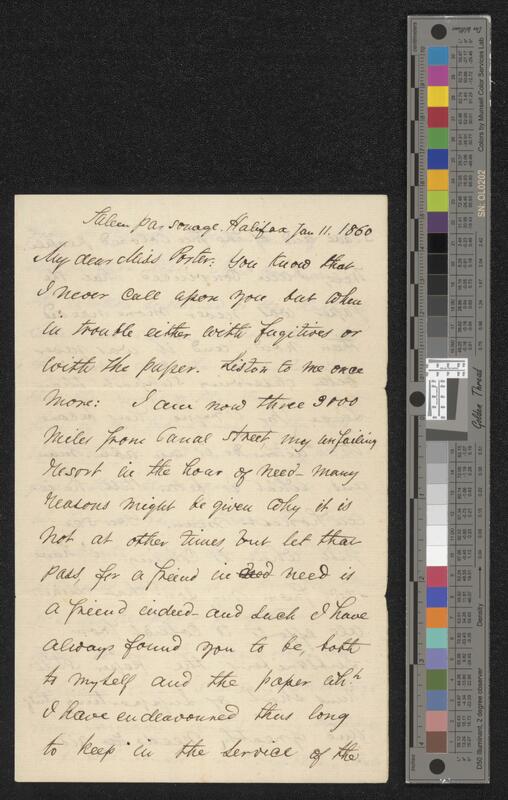 Salem parsonage. Halifax Jan 11. 1860
My dear Miss Porter. You know that
I never call upon you but when
in trouble either with fugitives or
with the paper. Listen to me once
more: I am now three 3000
miles from Canal Street my unfailing
resort in the hour of need - many
reasons might be given why it is
not at other times but let that
pass, for a friend in need is
a friend indeed - and such I have
always found you to be, both
to myself and the paper wh.h
I have endeavoured thus long
to keep in the service of the
Colors by Munsell Color Services Lab
SN: OL0202
Golden Thread
Density
D50 Illuminant, 2 degree observer
centimeters
inches